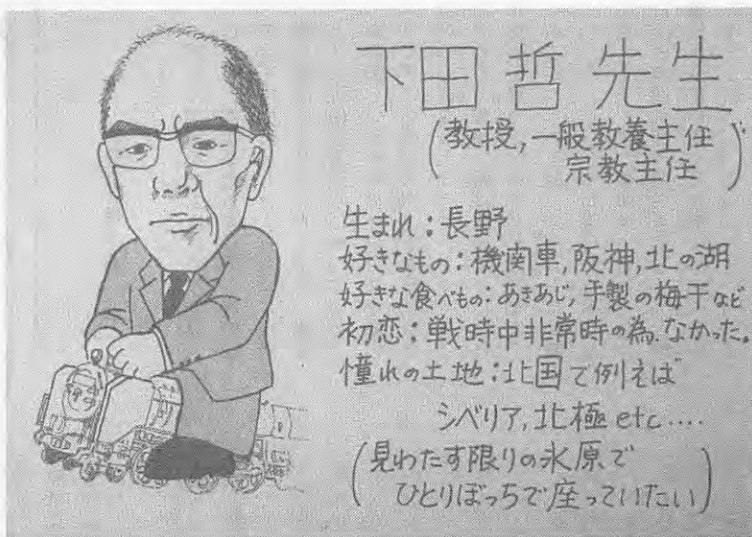 下田哲先生
(教授,一般教養主任
宗教主任)
生まれ:長野
好きなもの:機関車,阪神,北の湖
好きな食べもの:あきあじ,手製の梅干など
初恋:戦時中非常時の為、なかった。
憧れの土地:北国で例えば
シベリア,北極etc....
(見わたす限りの氷原で
ひとりぼっちで座っていたい)